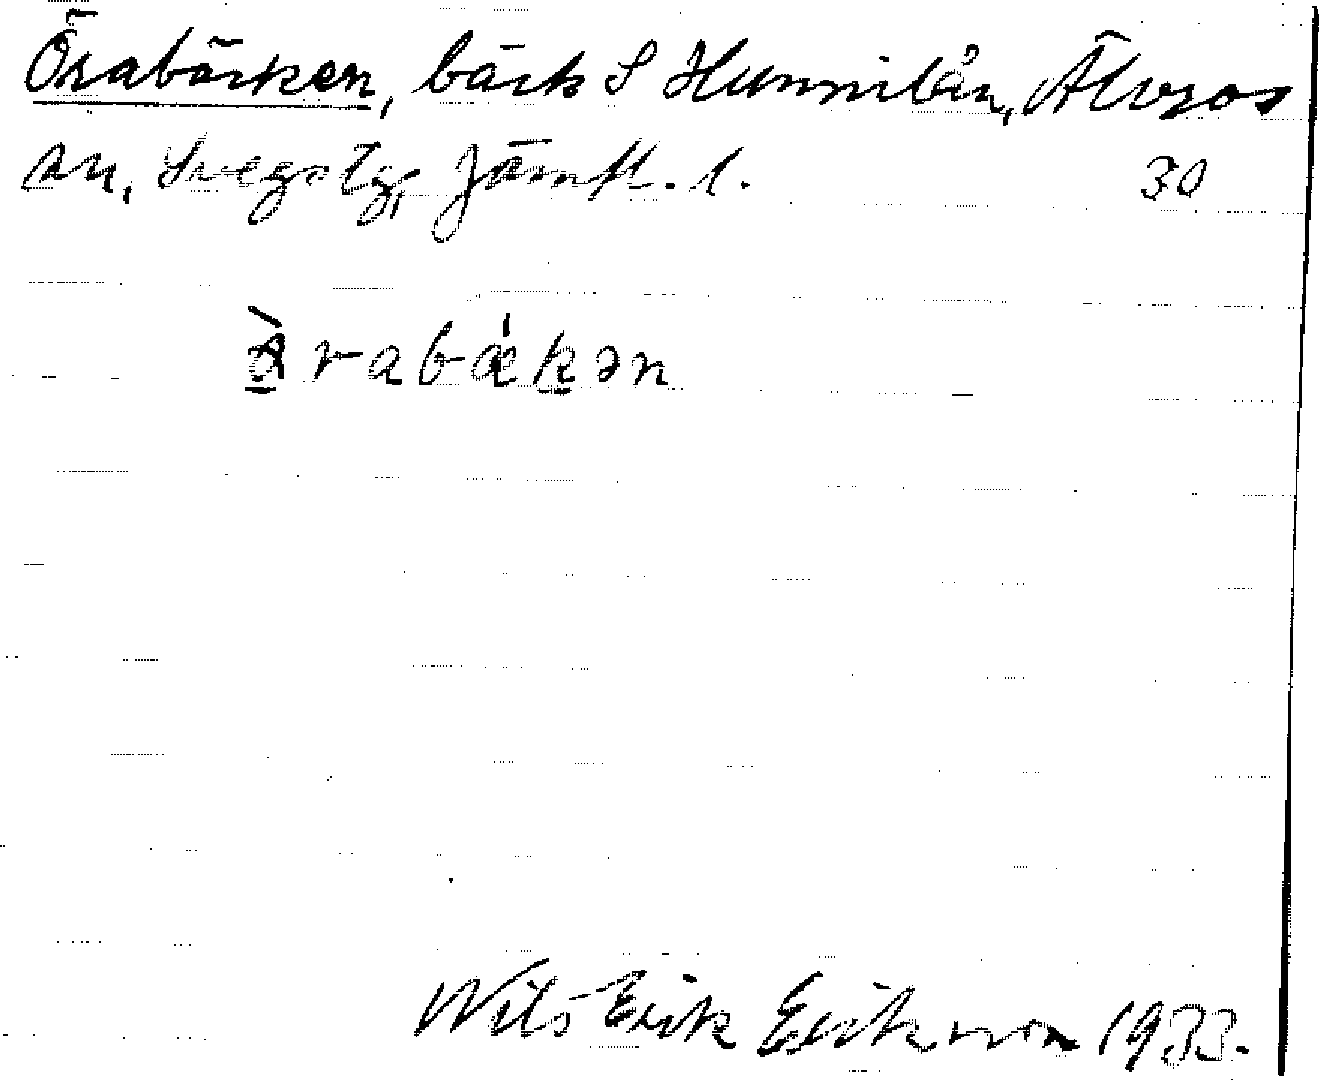 Örabäcken, bäck S Hunnilån, Älvros
sn, Svegs tg, Jämtl. l. 30
òrabǽkən
Nils Erik Eriksson 1933.